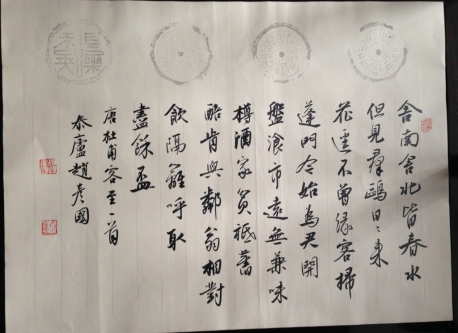 舍南舍北皆春水
但見羣鷗日〻来
花逕不曾緣客掃
蓬門今始為君開
盤飡市遠無兼味
樽酒家貧祗舊
醅肯與鄰翁相對
飲隔籬呼取
盡餘盃
唐杜甫客至一首
泰廬趙彦國